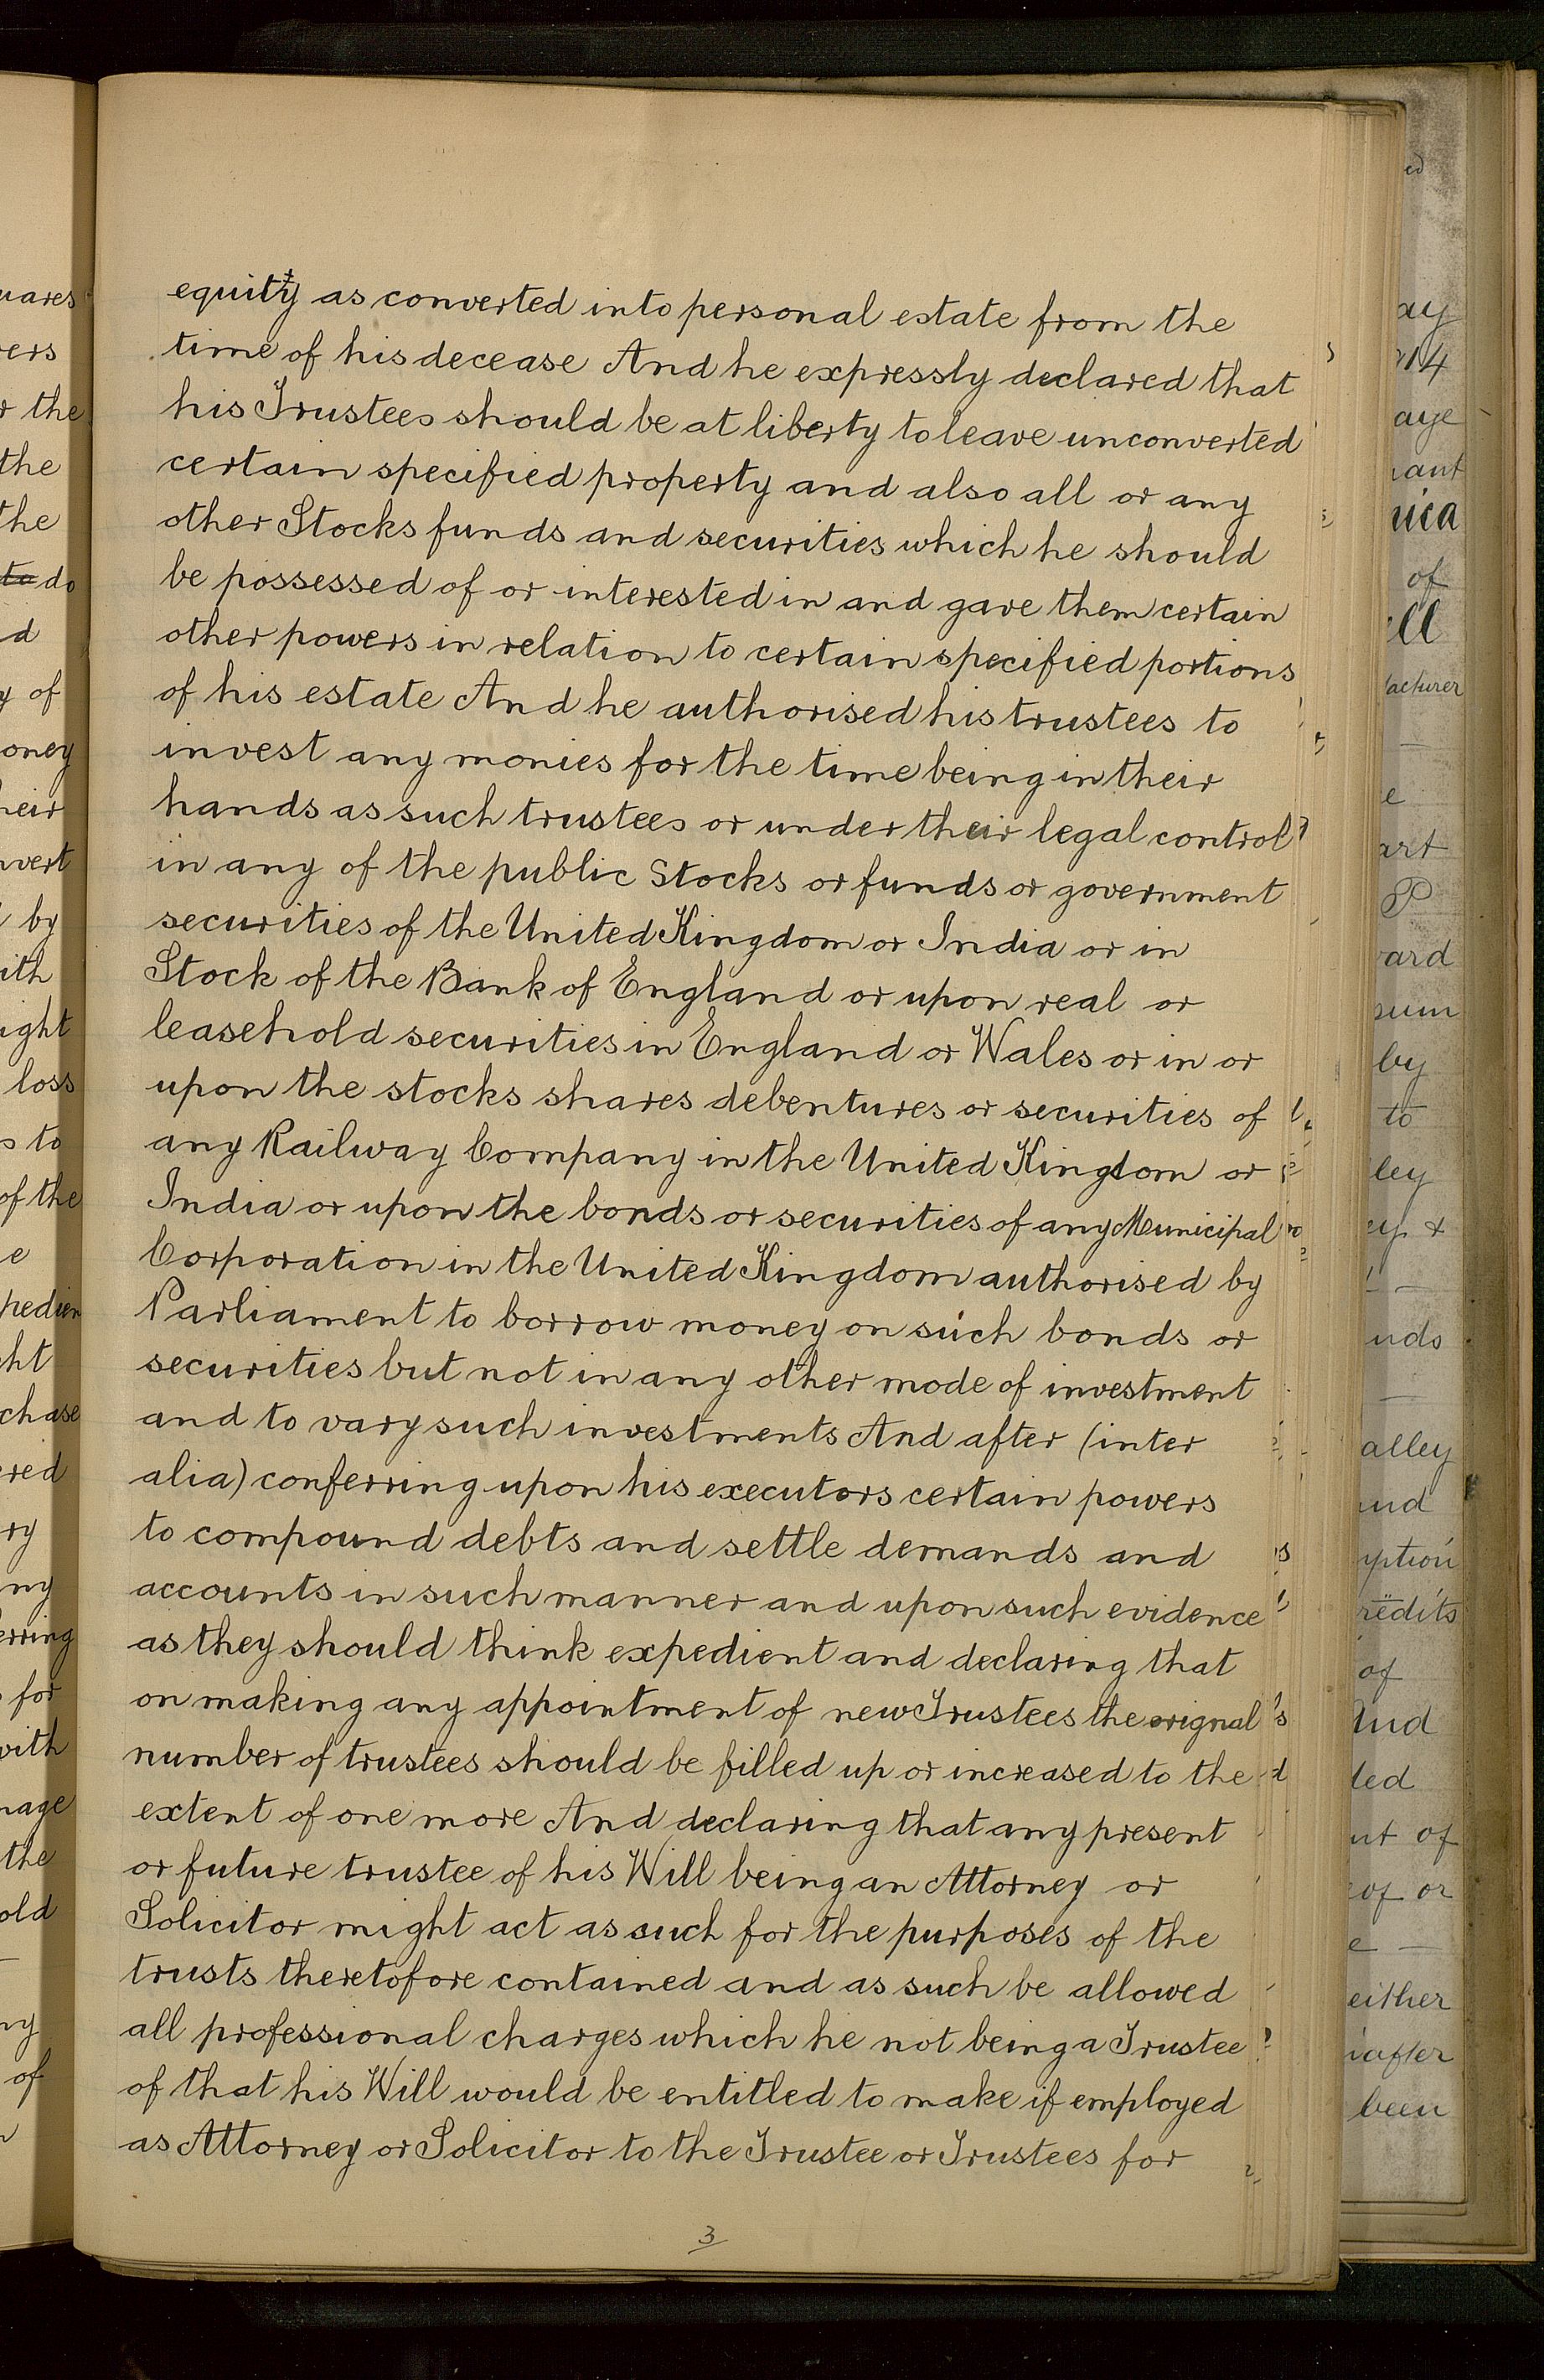 equity as converted into personal estate from the
time of his decease And he expressly declared that
his Trustees should be at liberty to leave unconverted
certain specified property and also all or any
other Stocks funds and securities which he should
be possessed of or interested in and gave them certain
other powers in relation to certain specified portions
of his estate And he authorised his trustees to
invest any monies for the time being in their
hands as such trustees or under their legal control
in any of the public Stocks or funds or government
securities of the United Kingdom or India or in
Stock of the Bank of England or upon real or
leasehold securities in England or Wales or in or
upon the stocks shares debentures or securities of
any Railway Company in the United Kingdom or
India or upon the bonds or securities of any Municipal
Corporation in the United Kingdom authorised by
Parliament to borrow money on such bonds or
securities but not in any other mode of investment
and to vary such investments And after (inter
alia) conferring upon his executors certain powers
to compound debts and settle demands and
accounts in such manner and upon such evidence
as they should think expedient and declaring that
on making any appointment of new Trustees the orignal
number of trustees should be filled up or increased to the
extent of one more And declaring that any present
or future trustee of his Will being an Attorney or
Solicitor might act as such for the purposes of the
trusts theretofore contained and as such be allowed
all professional charges which he not being a Trustee
of that his Will would be entitled to make if employed
as Attorney or Solicitor to the Trustee or Trustees for
3